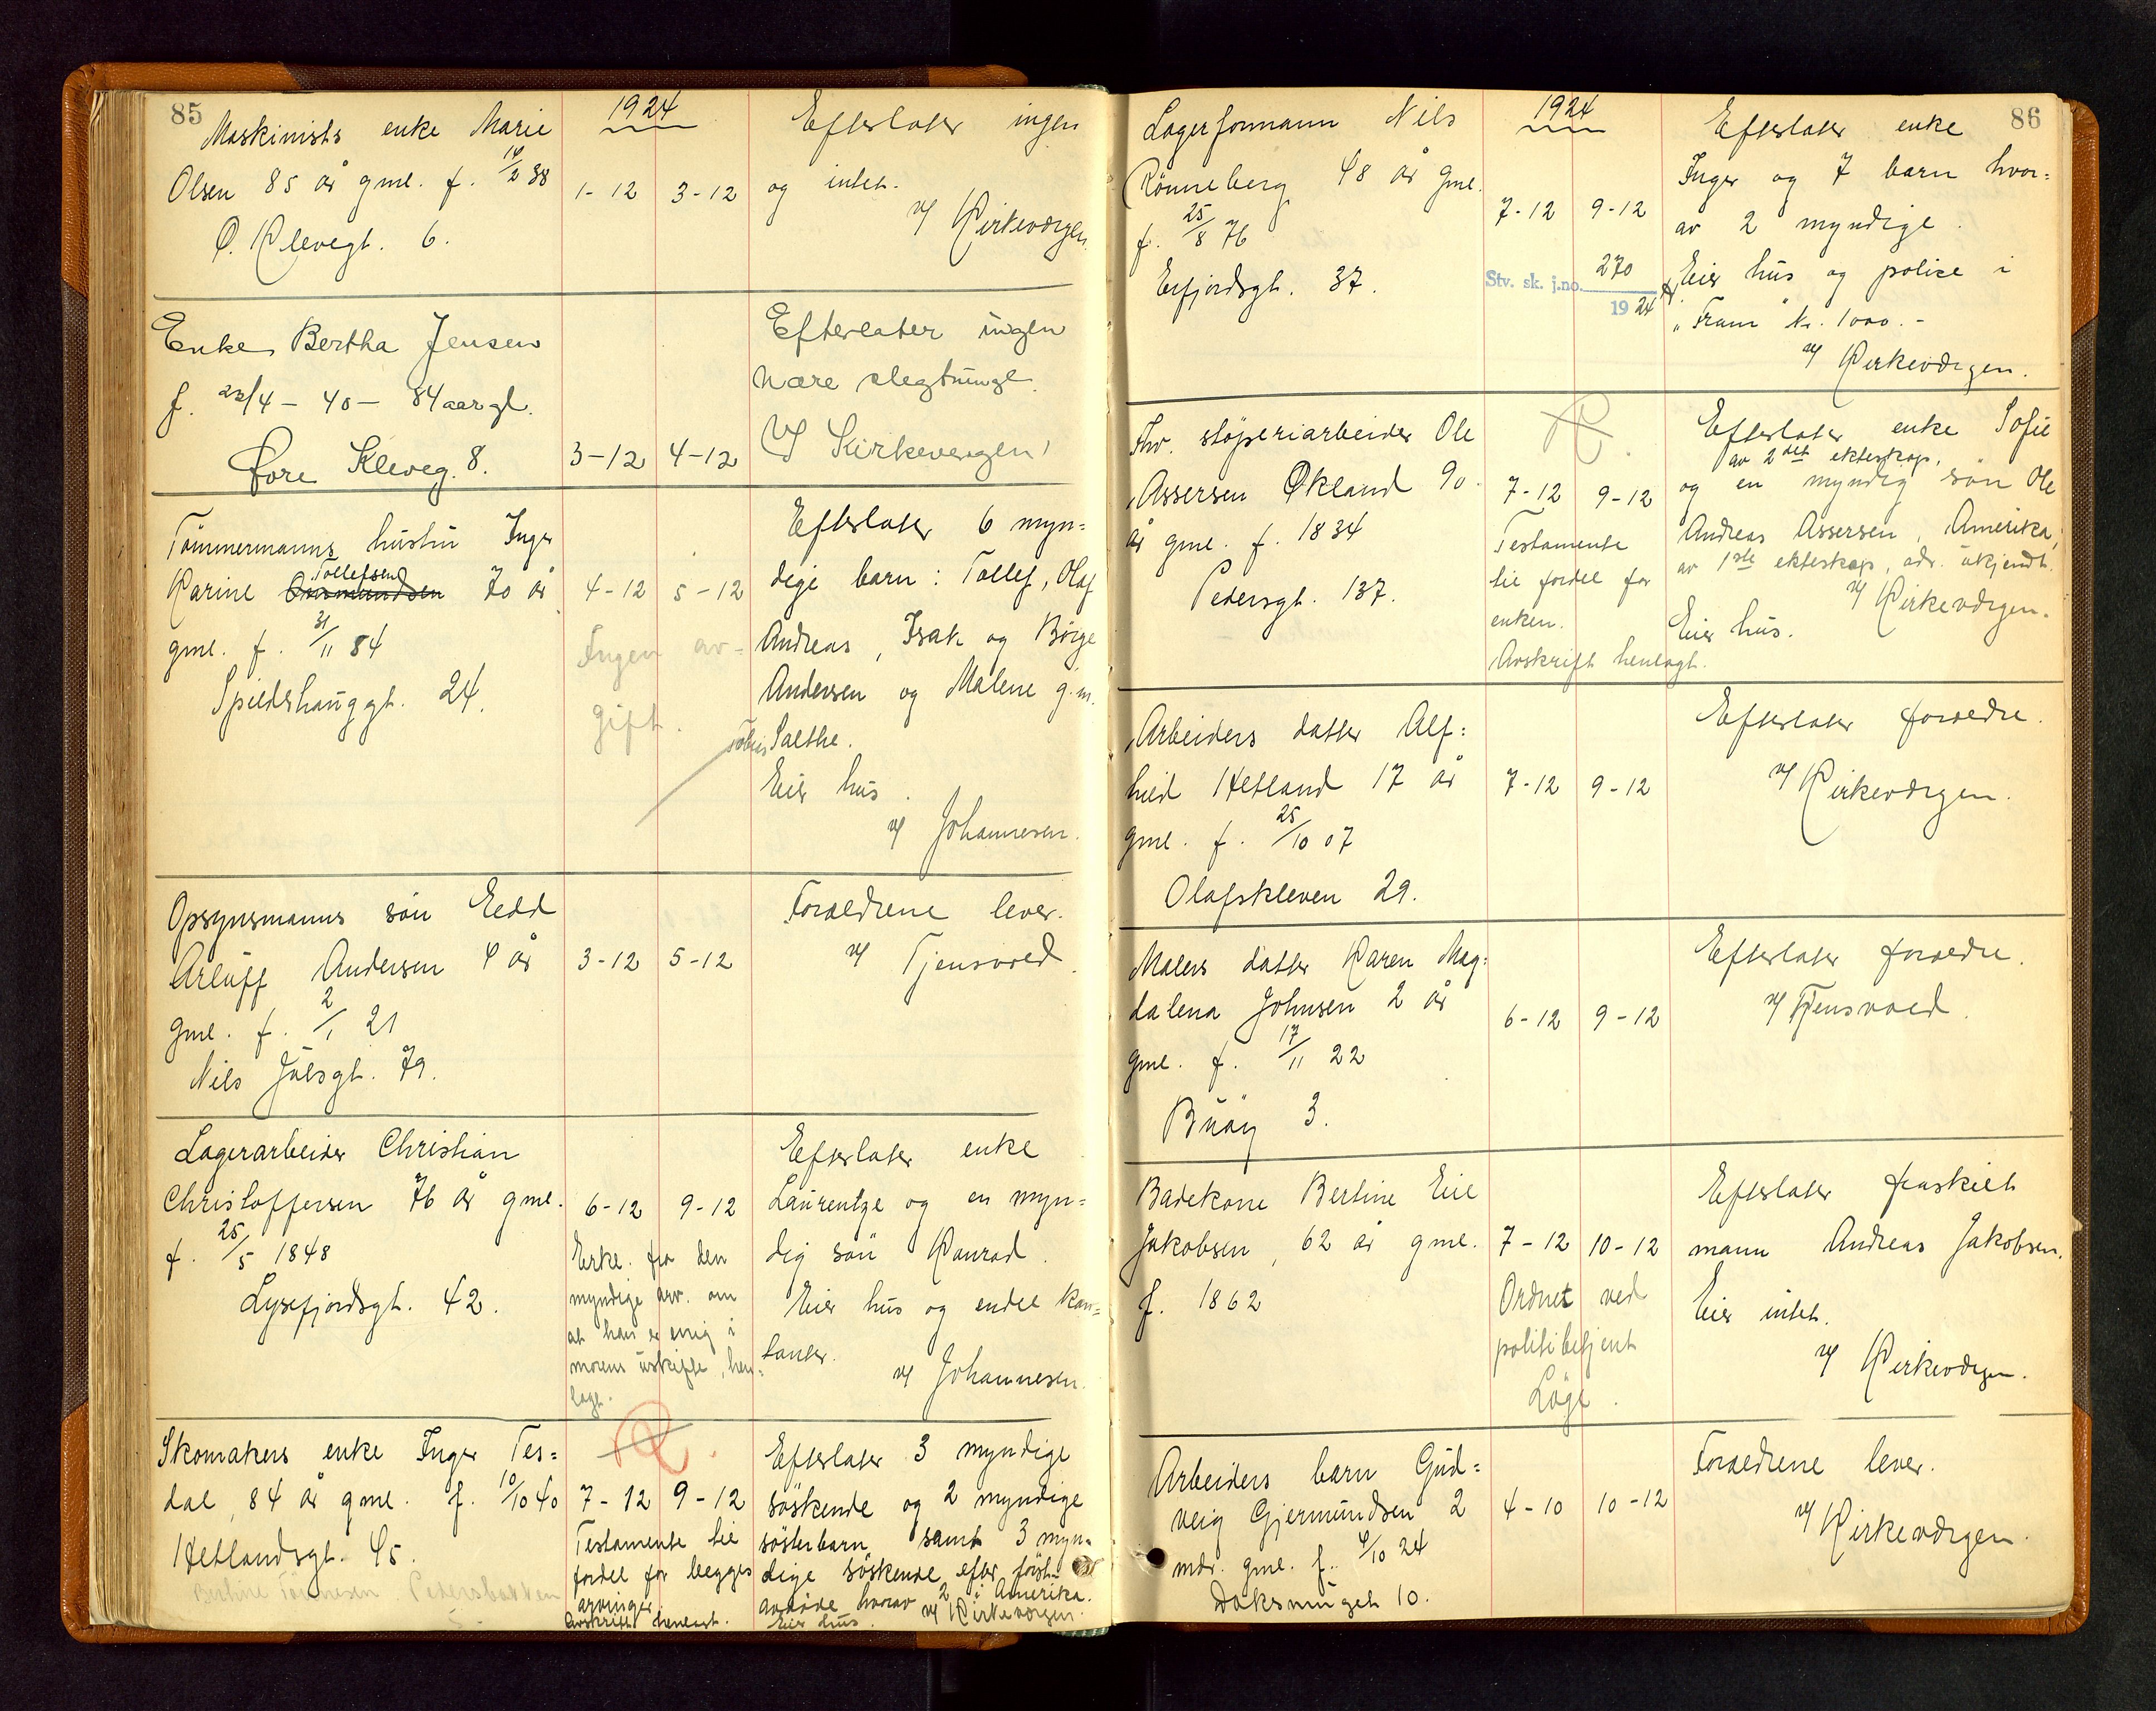 85
1924
Maskinists enke Marie
Olsen 85 år gml. f. 14/2 38
Ø. Klevegt. 6.
1-12 3-12
Efterlater ingen
og intet.
v/ Kirkevergen.
Enke Bertha Jensen
f. 22/4 - 40 - 84 aar gl.
Øvre Kleveg. 8.
3-12 4-12
Efterlater ingen
nære slegtninge.
v/ Kirkevergen
Tømmermanns hustru Inger
Tollefsen
Karine Aasmundsen 70 år
gml. f. 31/11 54
Spilderhauggt. 24.
4-12 5-12
Ingen av-
gift.
Efterlater 6 myn=
dige barn: Tollef, Olaf
Andreas, Isak og Børge
Andersen og Malene g.m.
Tobias Salthe.
Eier hus.
v/ Johannesen.
Opsynsmanns søn Eedd
Arluff Andersen 4 år
gml. f. 2/1 21
Nils Juelsgt. 79.
3-12 5-12
Forældrene lever.
v/ Tjensvold.
Lagerarbeider Christian
Christoffersen 76 år gml.
f. 25/5 1848
Lysefjordsgt. 42.
6-12 9-12
Erkl. fra den
myndige arv. om
at han er enig i
morens uskifte, hen=
lagt.
Efterlater enke
Laurentze og en myn=
dig søn Konrad.
Eier hus og endel kon=
tanter.
v/ Johannesen.
Skomakers enke Inger Tes=
dal, 84 år gml. f. 10/10 40
Hetlandsgt. 45.
Bertine Tønnesen Pedersbakken
7-12 9-12
Testamente til
fordel for begges
arvinger.
Avskrift henlagt.
Efterlater 3 myndige
søskende og 2 myndige
søsterbarn samt 3 myn=
dige søskende efter først
avdøde hvorav 2 i Amerika.
Eier hus. v/ Kirkevergen.
86
1924
Lagerformann Nils
Rønneberg 48 år gml.
f. 25/8 76
Erfjordsgt. 37.
7-12 9-12
Stv. sk. j.no. 270
1924
Efterlater enke
Inger og 7 barn hvor=
av 2 myndige.
Eier hus og police i
"Fram" kr. 1000.-
v/ Kirkevergen.
Fhv. støperiarbeider Ole
Assersen Økland 90
år gml. f. 1834
Pedersgt. 137.
7-12 9-12
Testamente
til fordel for
enken.
Avskrift henlagt.
Efterlater enke Sofie
av 2det ekteskap,
og en myndig søn Ole
Andreas Assersen, Amerika,
av 1ste ekteskap, adr. ukjendt.
v/ Kirkevergen.
Eier hus.
Arbeiders datter Alf=
hild Hetland 17 år
gml. f. 25/10 07
Olafskleven 29.
7-12 9-12
Efterlater forældre.
v/ Kirkevergen.
Malers datter Karen Mag=
dalena Johnsen 2 år
gml. f. 17/11 22
Buøy 3.
6-12 9-12
Efterlater forældre.
v/ Tjensvold.
Badekone Bertine Elie
Jakobsen, 62 år gml.
f. 1862
7-12 10-12
Ordnet ved
politibetjent
Løge.
Efterlater fraskilt
mann Andreas Jakobsen.
Eier intet.
v/ Kirkevergen.
Arbeiders barn Gud=
veig Gjermundsen 2
mdr. gml. f. 4/10 24
Doksmuget 10.
4-10 10-12
Forældrene lever.
v/ Kirkevergen.